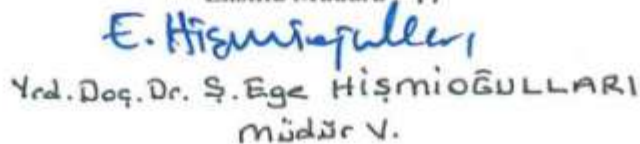 E. Hişmioğulları
Yrd. Doç. Dr. Ş. Ege HİŞMİOĞULLARI
Müdür V.